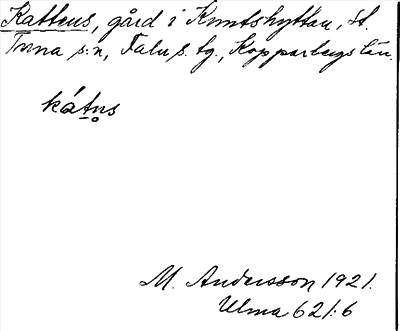 Kattens, gård i Knutshyttan, St.
Tuna s:n, Falu s. tg., Kopparbergs län.
kátn̥s
M. Andersson 1921.
Ulma 621:6